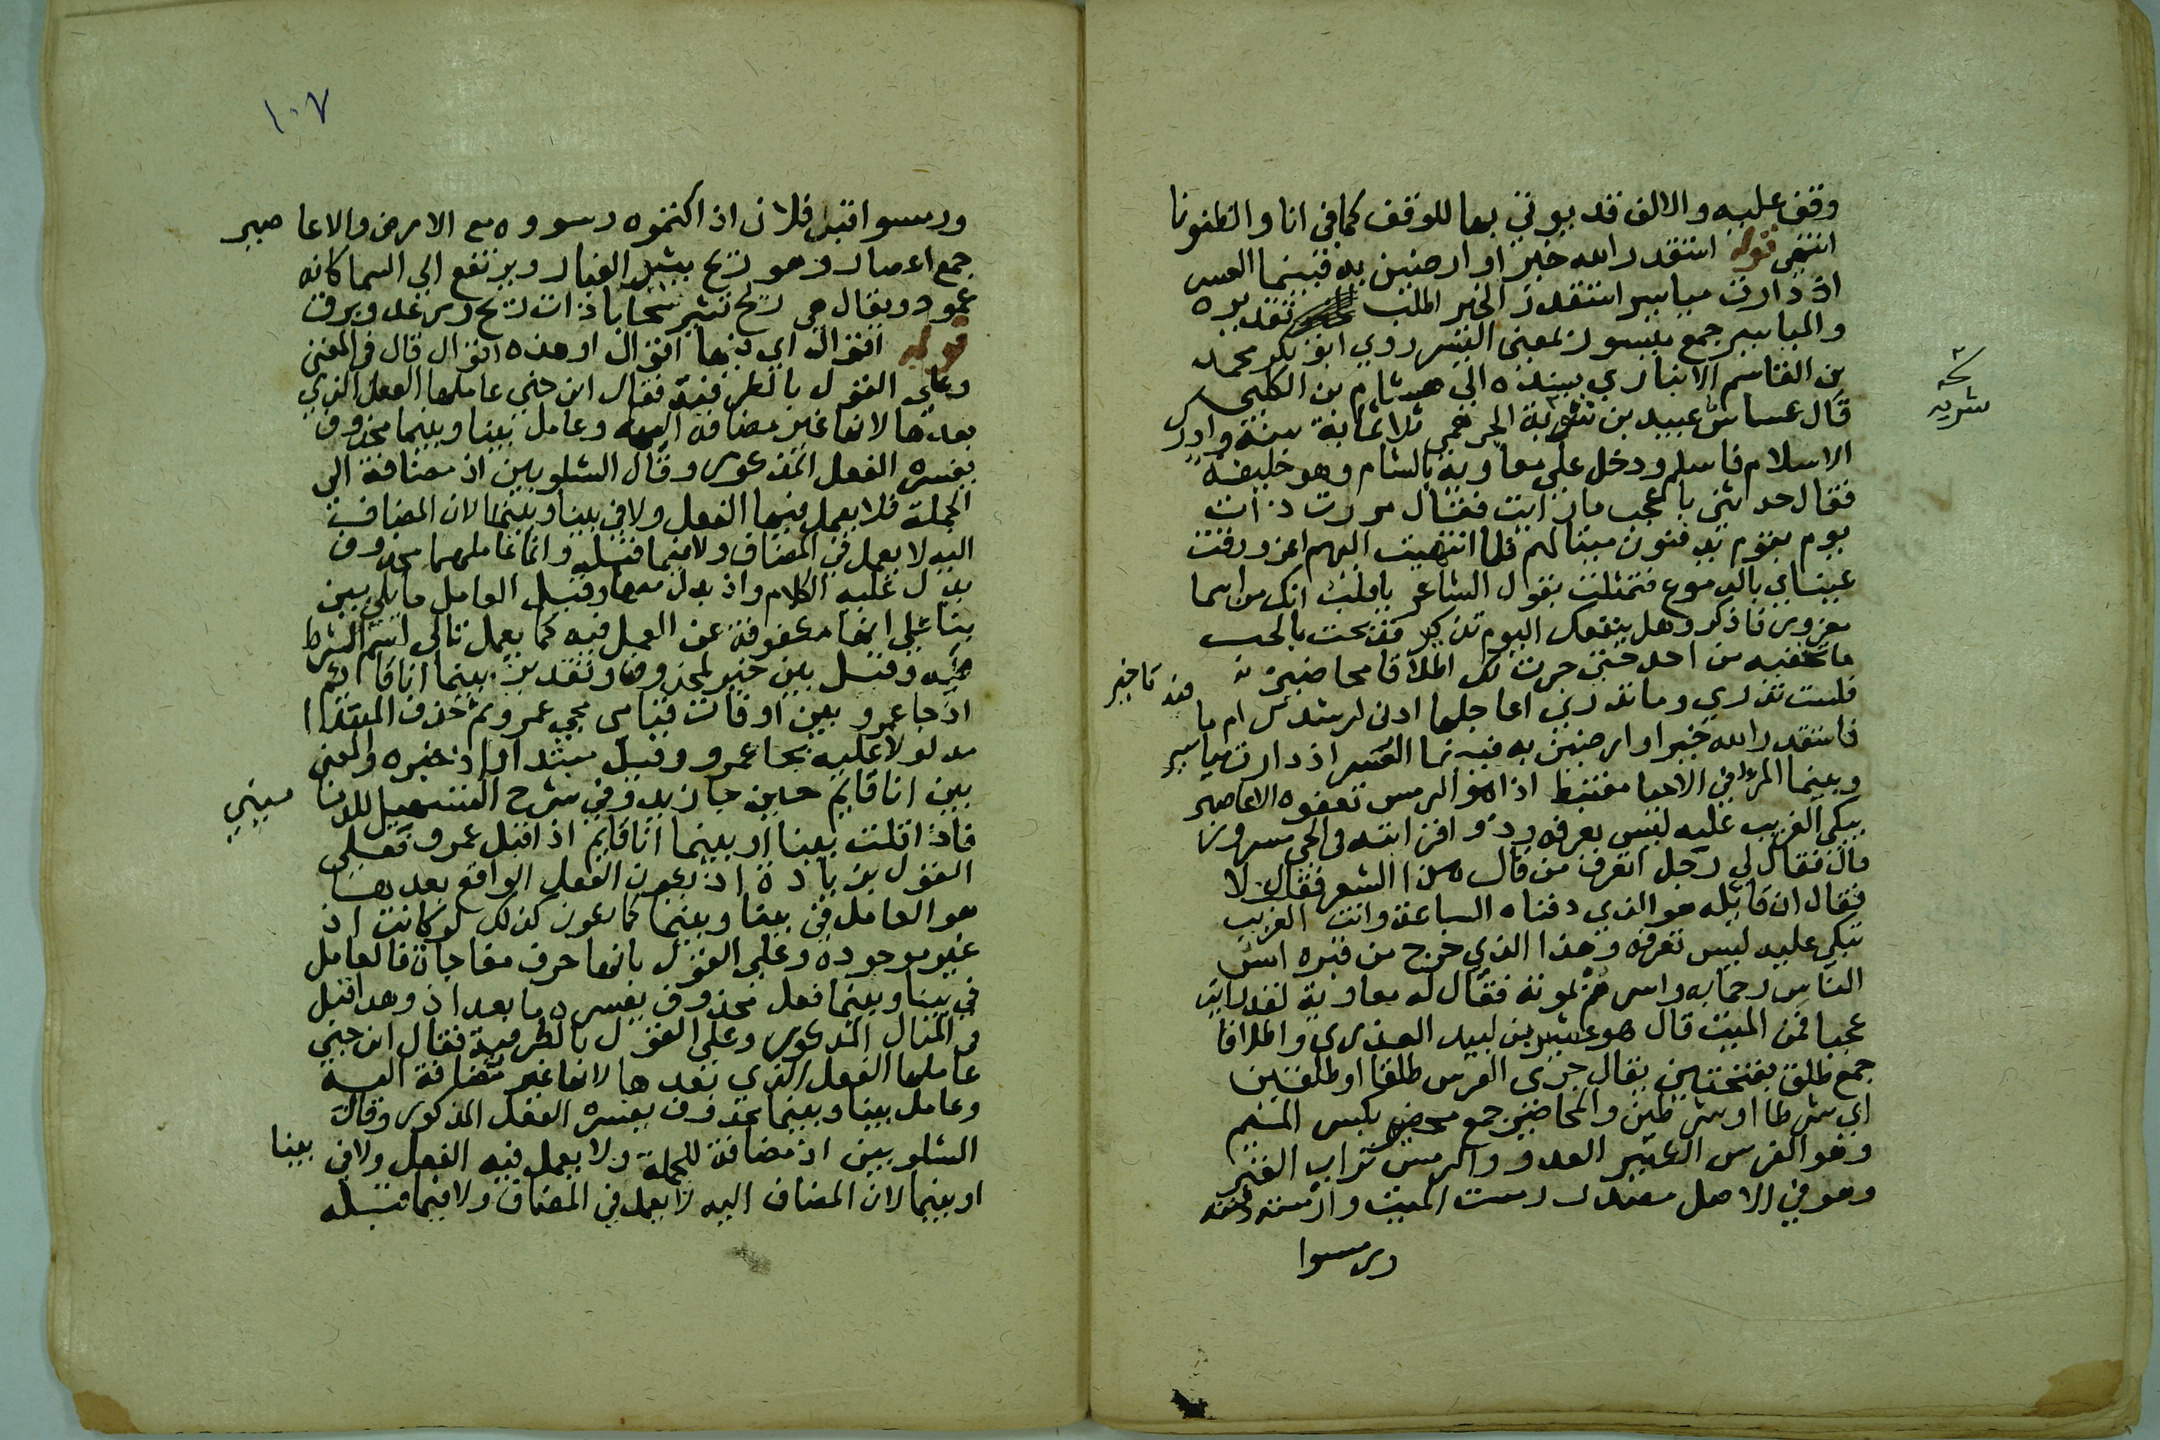 وقف عليه والالف قد يوتي بها للوقف كما في انا والظنونا
انتهى قوله استقدر الله خيرا وارضين به فبينما العسر
اذ دارت مياسير استقدر الخير اطلب تقديره
والمياسير جمع ميسور بمعنى اليسر روي ابو بكر محمد
بن القاسم الانباري بسنده الى هشام بن الكلبي
قال عاش عبيد بن شرية الجرهمي ثلاثماية سنة وادرك
نسخه شريه
الاسلام فاسلم ودخل على معاوية بالشام وهو خليفة
فقال حدثني باعجب ما رايت فقال مررت ذات
يوم بقوم يدفنون ميتا لهم فلما انتهيت اليهم اغرورقت
عيناي بالدموع فتمثلت بقول الشاعر يا قلب انك من اسما
مغرور فاذكر وهل ينفعك اليوم تذكير قد بحت بالحب
ما تخفيه من احد حتى جرت لك اطلاقا محاضير
فلست تدري وما تدري اعاجلها ادنى لرشدك ام ما فيه تاخير
فاستقدر الله خيرا وارضين به فبينما العسر اذ دارت مياسير
وبينما المرء في الاحيا مغتبط اذا هو الرمس تعفوه الاعاصير
يبكي الغريب عليه ليس يعرفه وذو قرابته في الحي مسرور
قال فقال لي رجل اتعرف من قال هذا الشعر فقال لا
فقال ان قائله هو الذي دفناه الساعة وانت الغريب
تبكي عليه ليس تعرفه وهذا الذي خرج من قبره امس
الناس رحما به واسرهم بموته فقال له معاوية لقد رايت
عجبا فمن الميت قال هو عثير بن لبيد العذري واطلاقا
جمع طلق بفتحتين يقال جرى الفرس طلقا او طلقين
اي شرطا او شرطين والمحاضير جمع محضير بكسر الميم
وهو الفرس الكثير العدو والرمس تراب القبر
وهو في الاصل مصدر رمست الميت وارمسته دفنته
ورمسوا
١٠٧
ورمسوا قبر فلان اذا كتموه وسووه مع الارض والاعاصير
جمع اعصار وهو ريح يثير الغبار ويرتفع الى السما كانه
عمود ويقال هي ريح تثير سحابا ذات ريح ورعد وبرق
قوله اقوال اي فيها اقوال او هذه اقوال قال في المغني
وعلى القول بالظرفية فقال ابن جني عاملها الفعل الذي
بعدها لانها غير مضافة اليه وعامل بينا وبينما محذوف
يفسره الفعل المذكور وقال الشلوبين اذ مضافة الى
الجملة فلا يعمل فيها الفعل ولا في بينا وبينما لان المضاف
اليه لا يعمل في المضاف ولا فيما قبله وانما عاملهما محذوف
يدل عليه الكلام واذ بدل منهما وقيل العامل ما يلي بين
بنا على انها مكفوفة عن العمل فيه كما يعمل تالي اسم الشرط
فيه وقيل بين خبر لمحذوف وتقديره بينما انا قائم
اذ جا عمرو بين اوقات قيامي مجي عمرو ثم حذف المبتدا
مدلولا عليه بجا عمرو وقيل مبتدا واذ خبره والمعنى
بين انا قايم حين جا زيد وفي شرح التسهيل للدماميني
فاذا قلت بينا او بينما انا قايم اذ اقبل عمرو فعلى
القول بزيادة اذ يكون الفعل الواقع بعدها
هو العامل في بينا وبينما كما يكون كذلك لو كانت اذ
غير موجودة وعلى القول بانها حرف مفاجاة فالعامل
في بينا وبينما فعل محذوف يفسره ما بعد اذ وهو اقبل
في المثال المذكور وعلى القول بالظرفية فقال ابن جني
عاملها الفعل الذي بعدها لانها غير مضافة اليه
وعامل بينا وبينما محذوف يفسره الفعل المذكور وقال
الشلوبين اذ مضافة للجملة ولا يعمل فيه الفعل ولا في بينا
او بينما لان المضاف اليه لا يعمل في المضاف ولا فيما قبله